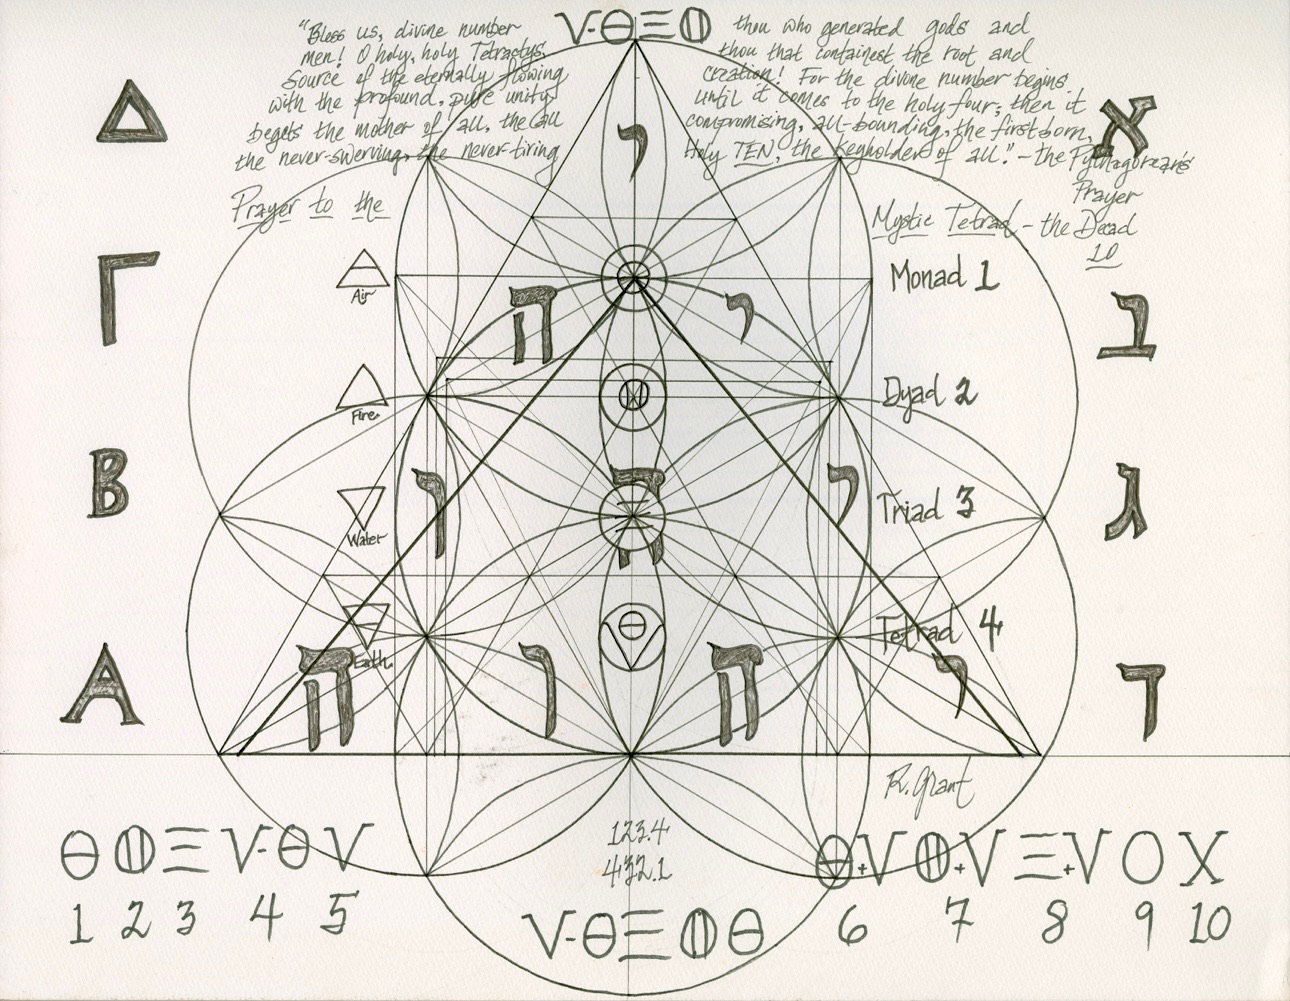 V-ΘΞ
"Bless us, divine number thou who generated gods and
men! O holy, holy Tetractys, thou that containest the root and
source of the eternally flowing creation! For the divine number begins
with the profound, pure unity until it comes to the holy four; then it
begets the mother of all, the all compromising, all-bounding, the first-born,
the never-swerving, the never-tiring Holy TEN, the keyholder of all." - the Pythagorean's
Prayer
Prayer to the Mystic Tetrad - the Decad
10
Δ
א
י
Γ
Air
Monad 1
ב
ה י
Fire
Dyad 2
Β
Water
ו ה י
Triad 3
ג
Α
Earth
Tetrad 4
ד
ה ו ה י
R. Grant
123.4
432.1
Θ Ξ V-Θ V
1 2 3 4 5
Θ+V +V Ξ+V O X
6 7 8 9 10
V-ΘΞ Θ